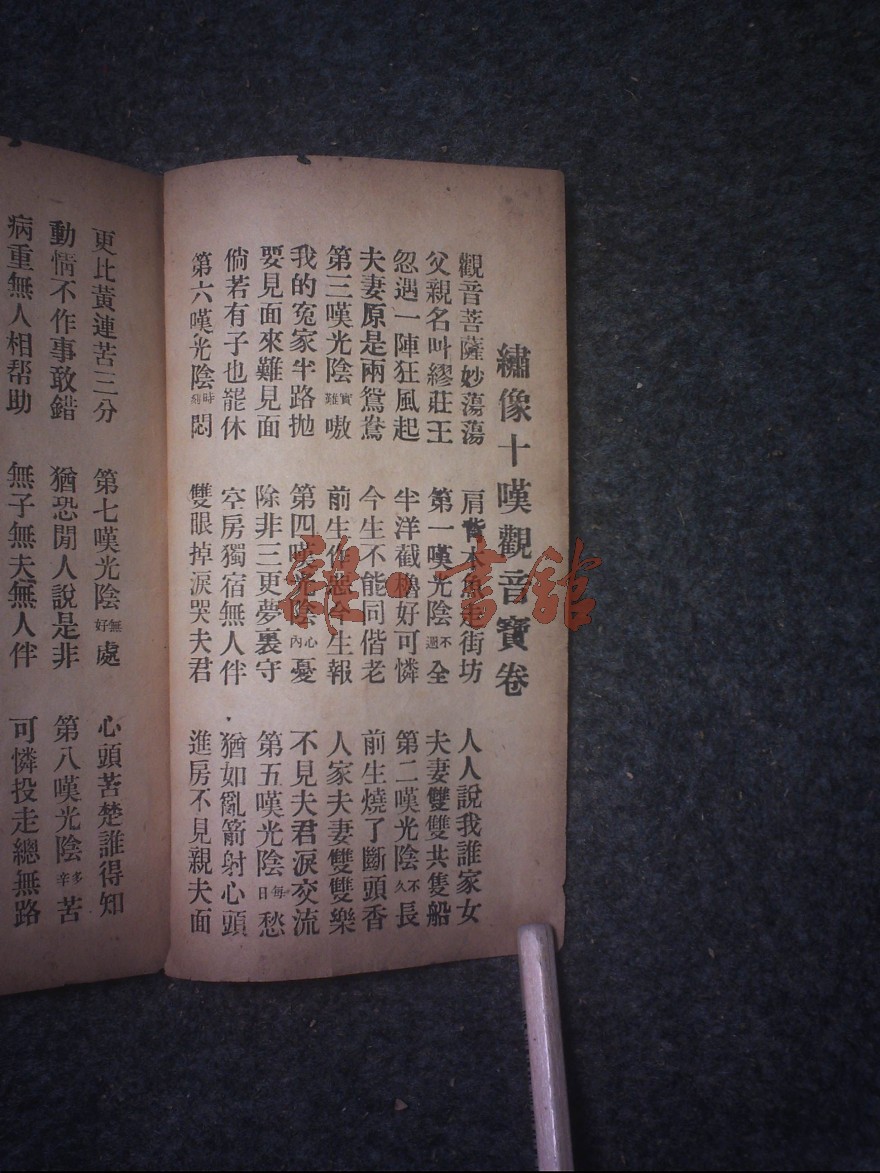 繡像十嘆觀音寶卷
觀音菩薩妙蕩蕩 肩背木魚走街坊 人人說我誰家女
父親名叫繆莊王 第一嘆光陰不週全 夫妻雙雙共隻船
忽遇一陣狂風起 半洋截櫓好可憐 第二嘆光陰不久長
夫妻原是兩鴛鴦 今生不能同偕老 前生燒了斷頭香
第三嘆光陰實難嗷 前生作惡今生報 人家夫妻雙雙樂
我的冤家半路抛 第四嘆光陰心內憂 不見夫君淚交流
要見面來難見面 除非三更夢裏守 第五嘆光陰每日愁
倘若有子也罷休 空房獨宿無人伴 猶如亂箭射心頭
第六嘆光陰時悶 雙眼掉淚哭夫君 進房不見親夫面
更比黃連苦三分 第七嘆光陰無好處 心頭苦楚誰得知
動情不作事敢錯 猶恐閒人說是非 第八嘆光陰多辛苦
病重無人相帮助 無子無夫無人伴 可憐投走總無路
雜·書館